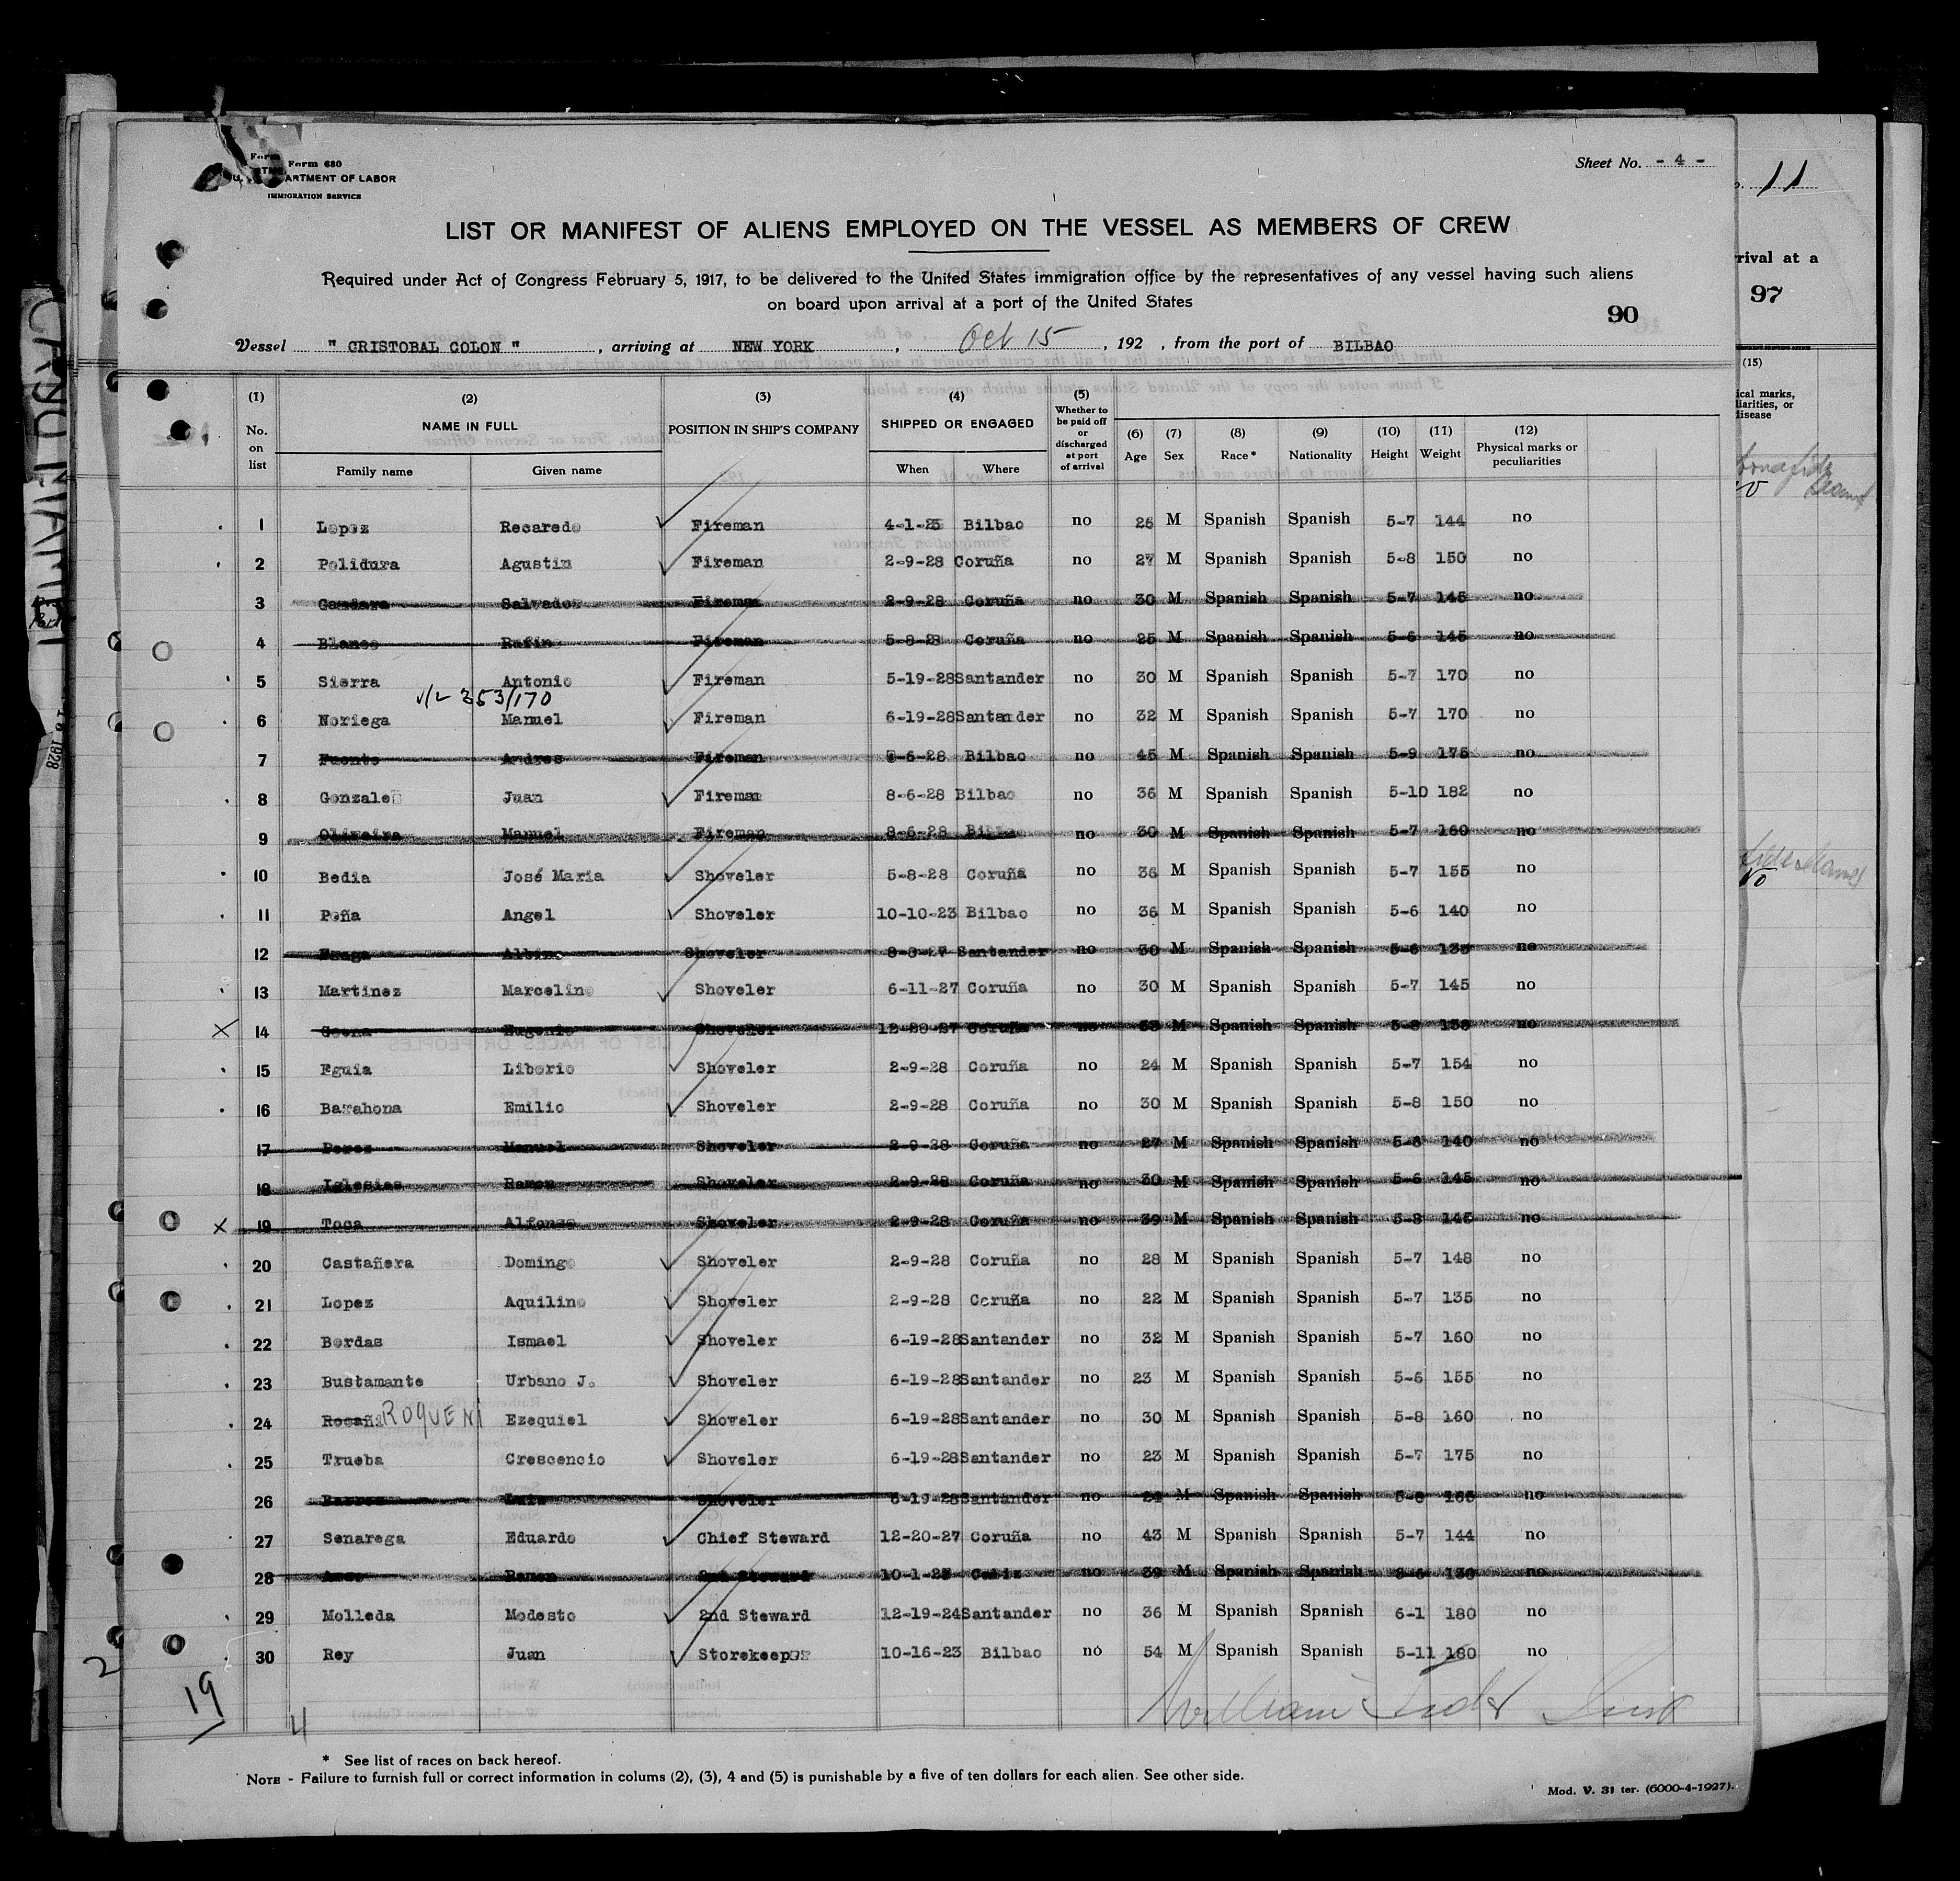 Form 680
U. S. DEPARTMENT OF LABOR
IMMIGRATION SERVICE
Sheet No. - 4 -
11
LIST OR MANIFEST OF ALIENS EMPLOYED ON THE VESSEL AS MEMBERS OF CREW
Required under Act of Congress February 5, 1917, to be delivered to the United States immigration office by the representatives of any vessel having such aliens
on board upon arrival at a port of the United States
rival at a
97
90
Vessel " CRISTOBAL COLON " , arriving at NEW YORK , Oct 15 , 192 , from the port of BILBAO
(1) (2) (3) (4) (5) (6) (7) (8) (9) (10) (11) (12) (15)
No. on list NAME IN FULL POSITION IN SHIP'S COMPANY SHIPPED OR ENGAGED Whether to be paid off or discharged at port of arrival Age Sex Race* Nationality Height Weight Physical marks or peculiarities
Family name Given name When Where
ical marks,
liarities, or
disease
1 Lopez Recaredo Fireman 4-1-25 Bilbao no 25 M Spanish Spanish 5-7 144 no
2 Polidura Agustin Fireman 2-9-28 Coruña no 27 M Spanish Spanish 5-8 150 no
3 Gandara Salvador Fireman 2-9-28 Coruña no 30 M Spanish Spanish 5-7 145 no
4 Blanco Rafin Fireman 5-8-28 Coruña no 25 M Spanish Spanish 5-6 145 no
5 Sierra Antonio Fireman 5-19-28 Santander no 30 M Spanish Spanish 5-7 170 no
v/L 353/170
6 Noriega Manuel Fireman 6-19-28 Santander no 32 M Spanish Spanish 5-7 170 no
7 Fuente Andres Fireman 6-28 Bilbao no 45 M Spanish Spanish 5-9 175 no
8 Gonzalez Juan Fireman 8-6-28 Bilbao no 36 M Spanish Spanish 5-10 182 no
9 Oliveira Manuel Fireman 8-6-28 Bilbao no 30 M Spanish Spanish 5-7 160 no
10 Bedia José Maria Shoveler 5-8-28 Coruña no 36 M Spanish Spanish 5-7 155 no
11 Peña Angel Shoveler 10-10-23 Bilbao no 36 M Spanish Spanish 5-6 140 no
12 Albino Shoveler 8-8-27 Santander no 30 M Spanish Spanish 5-6 135 no
13 Martinez Marcelino Shoveler 6-11-27 Coruña no 30 M Spanish Spanish 5-7 145 no
X 14 Eugenio Shoveler 12-20-27 Coruña no 38 M Spanish Spanish 5-8 138 no
15 Eguia Liborio Shoveler 2-9-28 Coruña no 24 M Spanish Spanish 5-7 154 no
16 Barahona Emilio Shoveler 2-9-28 Coruña no 30 M Spanish Spanish 5-8 150 no
17 Perez Manuel Shoveler 2-9-28 Coruña no 27 M Spanish Spanish 5-6 140 no
18 Iglesias Ramon Shoveler 2-9-28 Coruña no 30 M Spanish Spanish 5-6 145 no
X 19 Toca Alfonso Shoveler 2-9-28 Coruña no 39 M Spanish Spanish 5-8 145 no
20 Castañera Domingo Shoveler 2-9-28 Coruña no 28 M Spanish Spanish 5-7 148 no
21 Lopez Aquilino Shoveler 2-9-28 Coruña no 22 M Spanish Spanish 5-7 135 no
22 Bordas Ismael Shoveler 6-19-28 Santander no 32 M Spanish Spanish 5-7 160 no
23 Bustamante Urbano J. Shoveler 6-19-28 Santander no 23 M Spanish Spanish 5-6 155 no
24 Rocañi ROQUENI Ezequiel Shoveler 6-19-28 Santander no 30 M Spanish Spanish 5-8 160 no
25 Trueba Crescencio Shoveler 6-19-28 Santander no 23 M Spanish Spanish 5-7 175 no
26 Luis Shoveler 6-19-28 Santander no 24 M Spanish Spanish no
27 Senarega Eduardo Chief Steward 12-20-27 Coruña no 43 M Spanish Spanish 5-7 144 no
28 Ramon 2nd Steward Cadiz no 39 M Spanish Spanish 130 no
29 Molleda Modesto 2nd Steward 12-19-24 Santander no 36 M Spanish Spanish 6-1 180 no
30 Rey Juan Storekeeper 10-16-23 Bilbao no 54 M Spanish Spanish 5-11 180 no
2
19
4
* See list of races on back hereof.
NOTE - Failure to furnish full or correct information in colums (2), (3), 4 and (5) is punishable by a five of ten dollars for each alien. See other side.
Mod. V. 31 ter. (6000-4-1927).